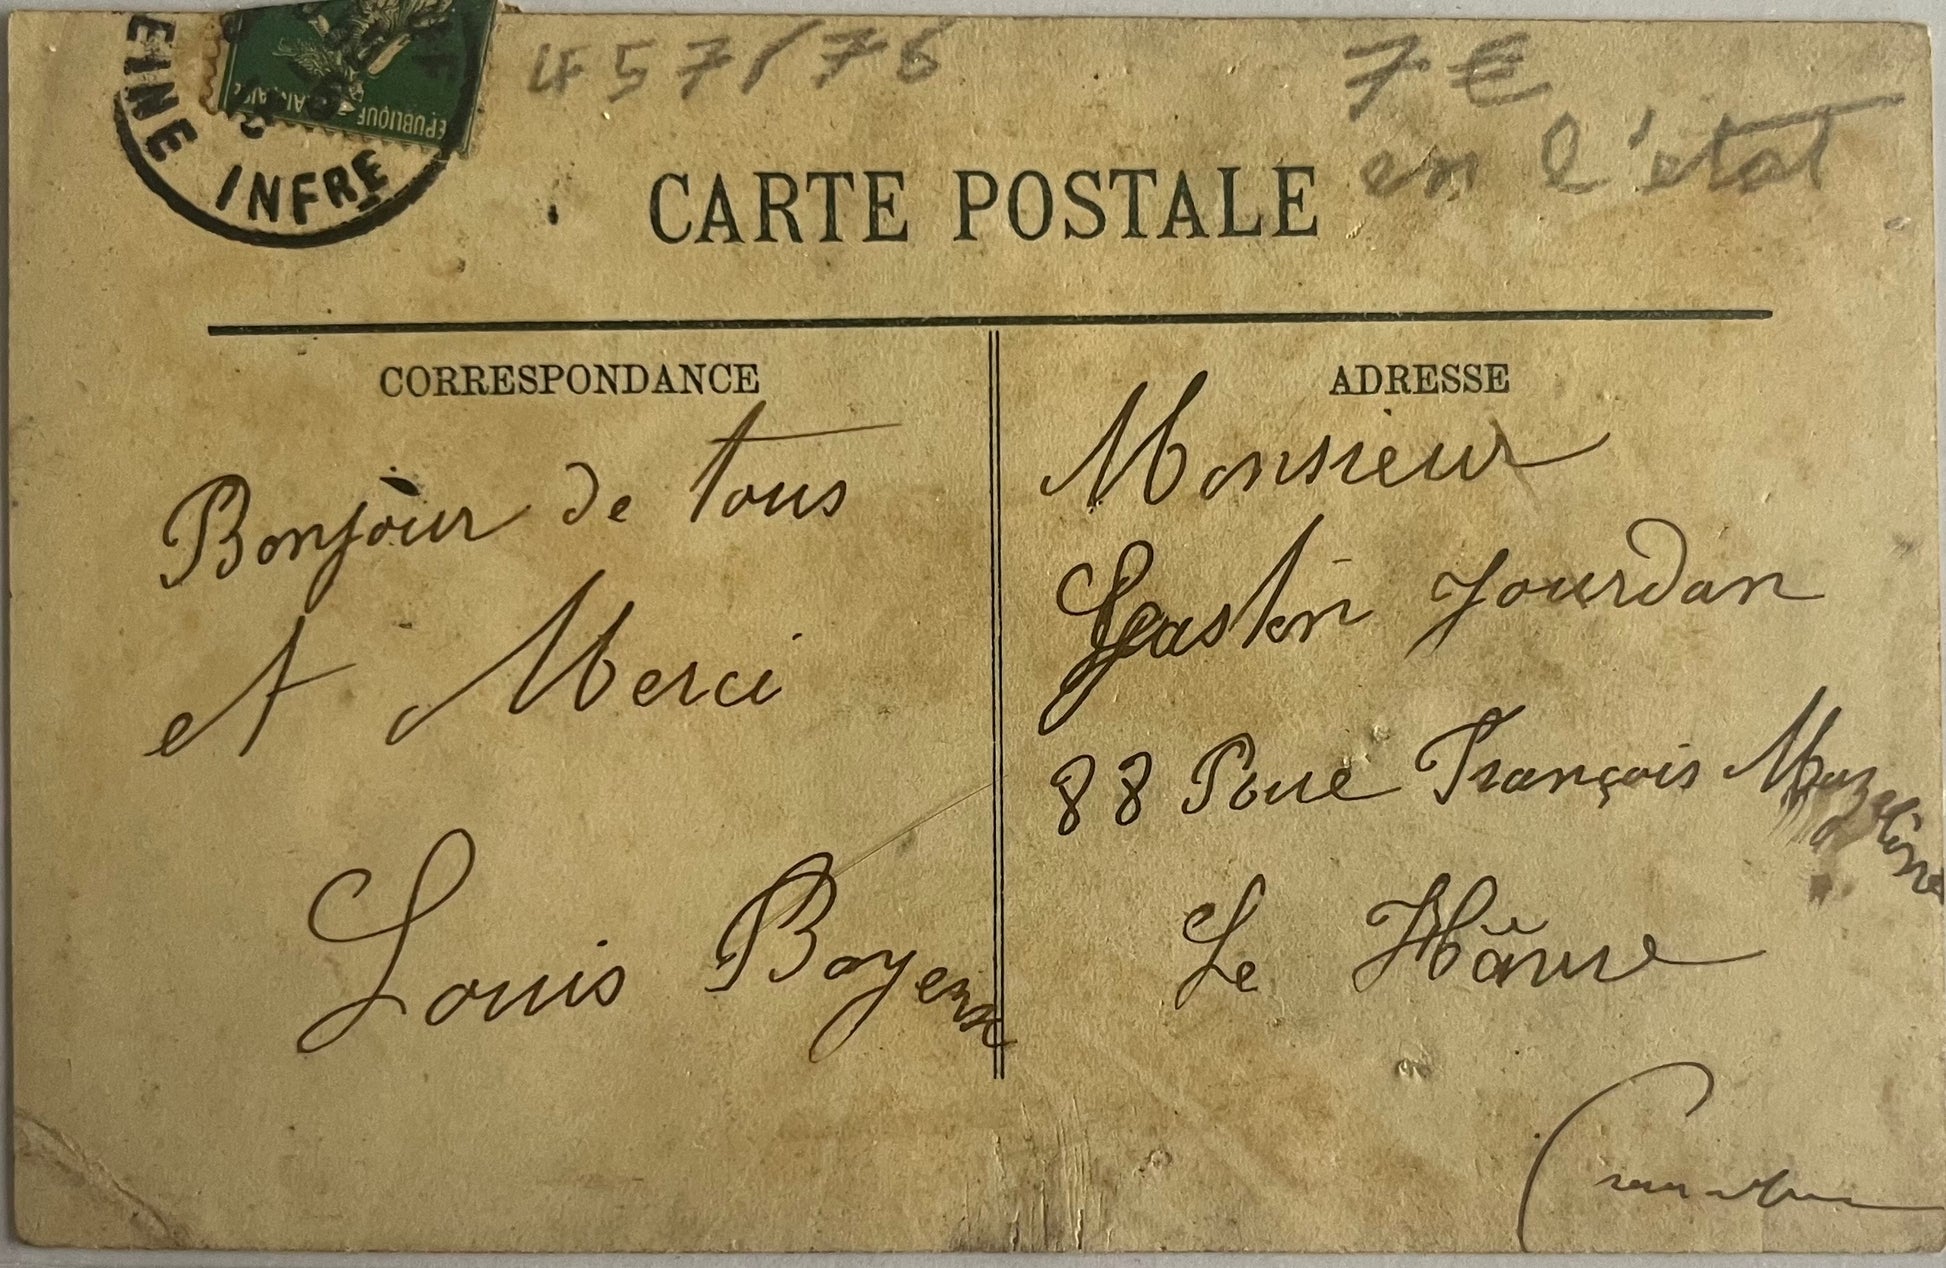 EINE INFRE
EPUBLIQUE
457/76
7€
en l'état
CARTE POSTALE
CORRESPONDANCE
Bonjour de tous
et Merci
Louis
ADRESSE
Monsieur
Gaston Jourdan
88 Rue François Mazeline
Le Hâvre